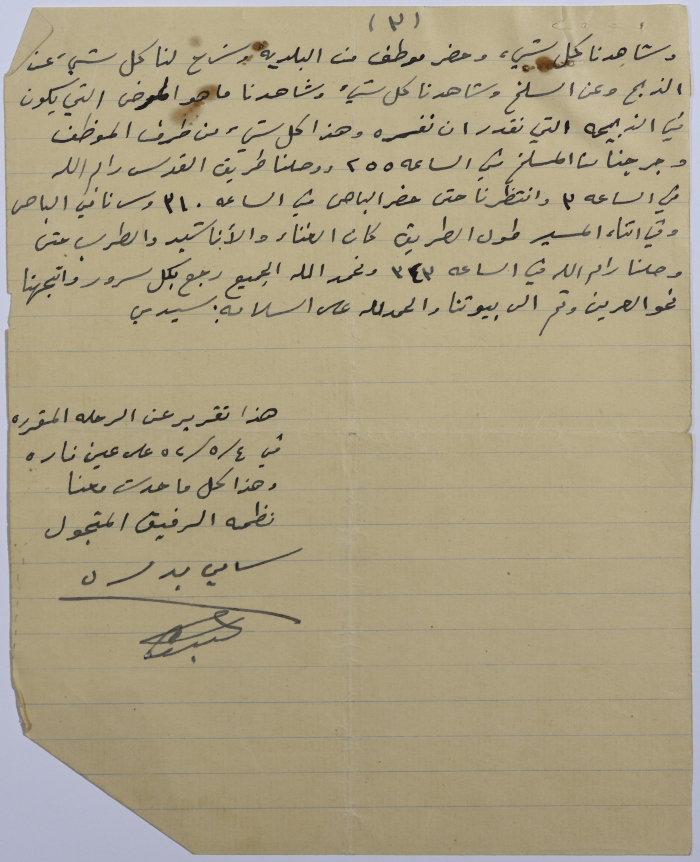 (٣)
وشاهدنا كل شيء، وحضر موظف من البلدية وشرح لنا كل شيء عن
الذبح وعن السلخ وشاهدنا كل شيء وشاهدنا ما هو المرض التي يكون
في الذبيحه التي نقدر ان نفسره وهذا كل شيء من طرف الموظف
وخرجنا من المسلخ في الساعه ٢٥٥ ووصلنا طريق القدس رام الله
في الساعه ٣ وانتظرنا حتى حضر الباص في الساعه ٣١٠ وسرنا في الباص
وفي اثناء المسير طول الطريق كان الغناء والأناشيد والطرب حتى
وصلنا رام الله في الساعه ٣٤٣ ونحمد الله الجميع رجع بكل سرور واتجهنا
نحو العرين وثم الى بيوتنا والحمد لله على السلامه: سيدي
هذا تقرير عن الرحله المقرره
في ٥٢/٥/٤ على عين فاره
وهذا كل ما حدث معنا
نظمه الرفيق المتجول
سامي بدران